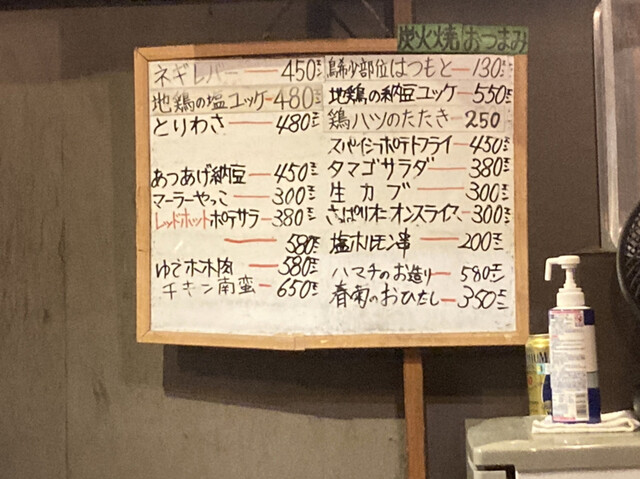 炭火焼 おつまみ
ネギレバー ー 450円
地鶏の塩ユッケー 480円
とりわさ ー 480円
あつあげ納豆 ー 450円
マーラーやっこ ー 300円
レッドホットポテサラ ー 380円
ー 580円
ゆでホホ肉 ー 580円
チキン南蛮 ー 650円
鳥希少部位はつもと ー 130円
地鶏の納豆ユッケ ー 550円
鶏ハツのたたき 250
スパイシーポテトフライ ー 450円
タマゴサラダ ー 380円
生カブ ー 300円
さっぱりオニオンスライス ー 300円
塩ホルモン串 ー 200円
ハマチのお造り ー 580円
春菊のおひたし ー 350円